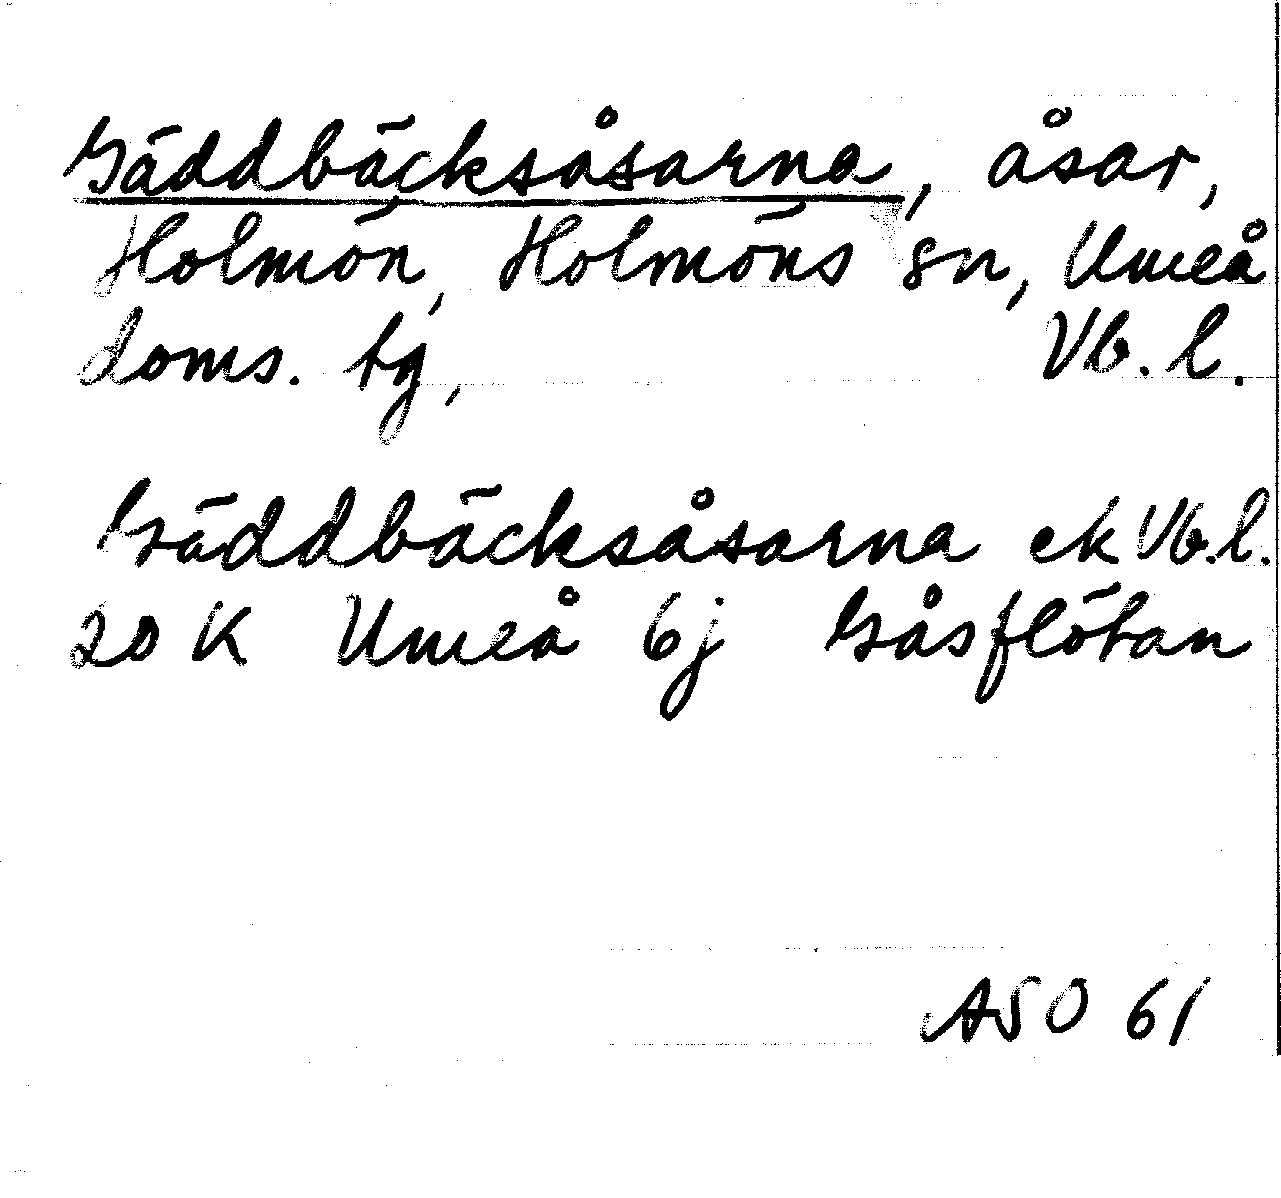 Gäddbäcksåsarna, åsar,
Holmön, Holmöns sn, Umeå
doms. tg, Vb. l.
Gäddbäcksåsarna ek Vb. l.
20 K Umeå 6j Gåsflötan
ASO 61